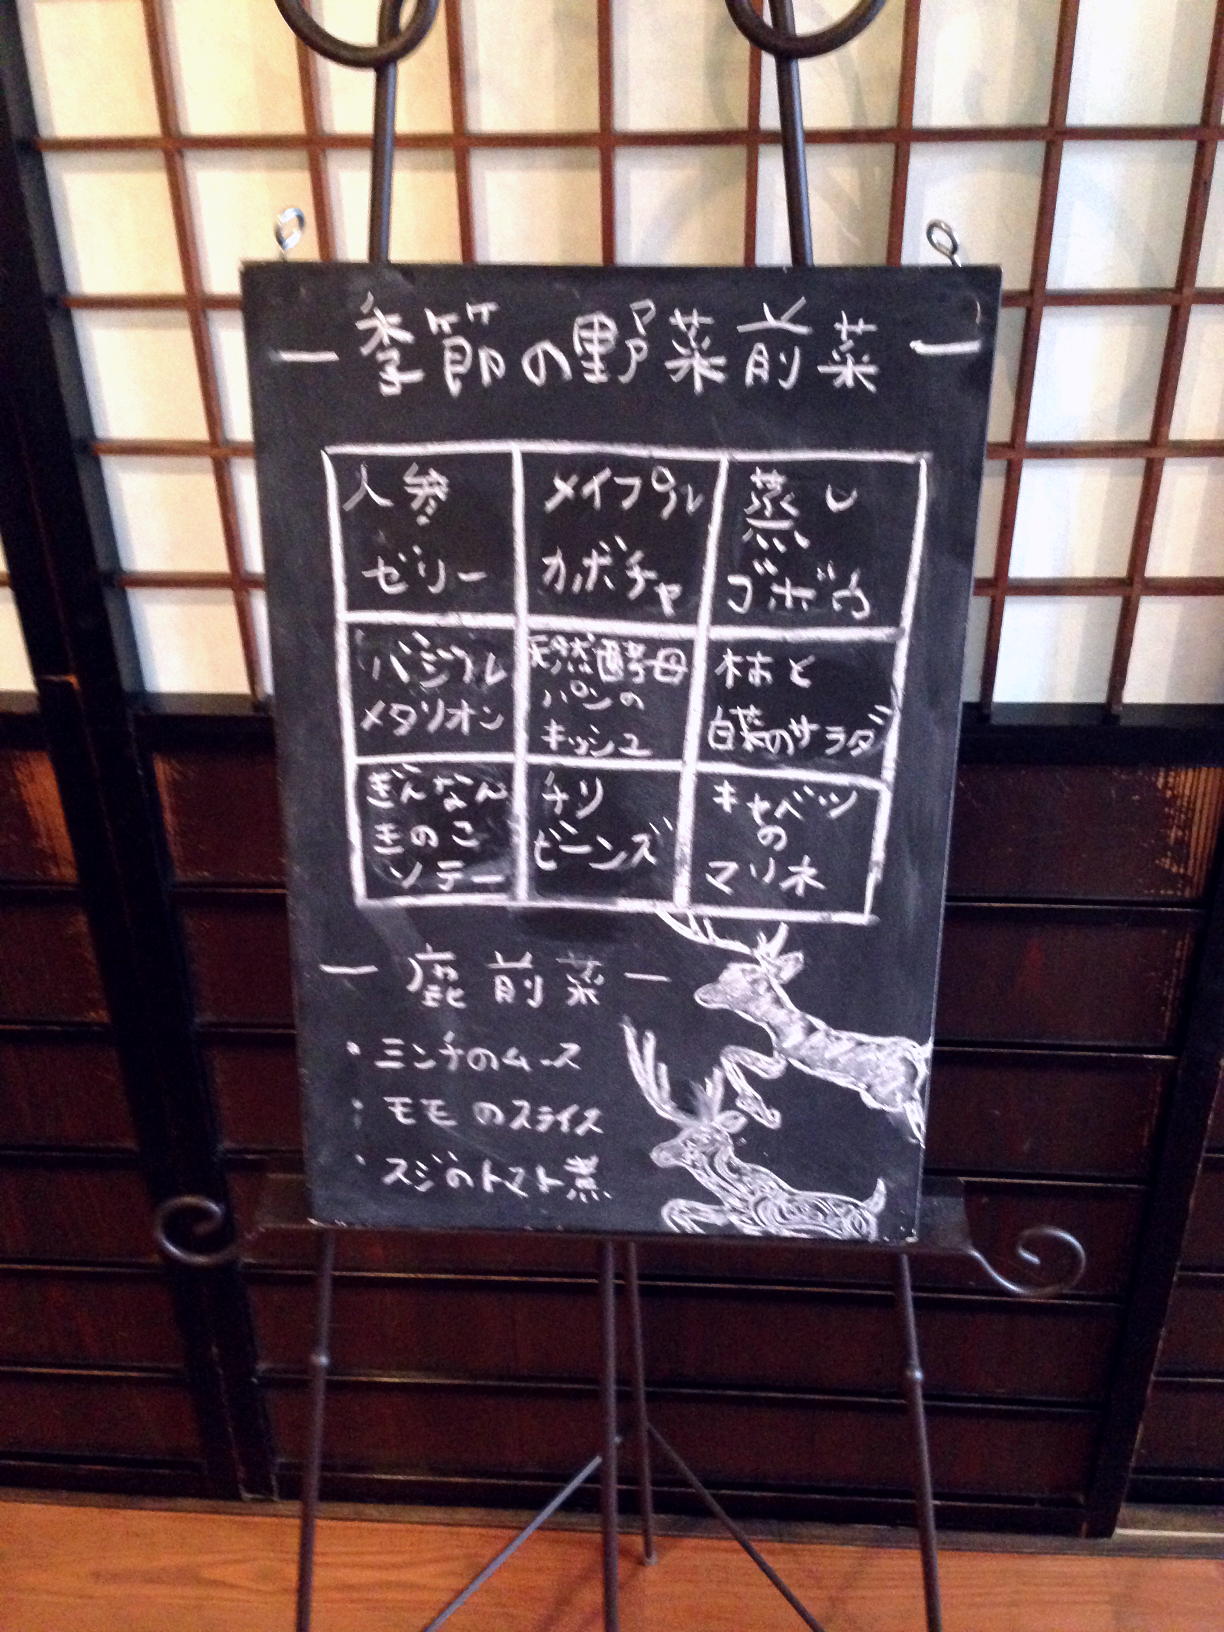 季節の野菜前菜
人参
ゼリー
メイプル
カボチャ
蒸し
ゴボウ
バジル
メダリオン
天然酵母
パンの
キッシュ
柿と
白菜のサラダ
ぎんなん
きのこ
ソテー
チリ
ビーンズ
キャベツ
の
マリネ
鹿前菜
・ミンチのムース
・モモのスライス
・スジのトマト煮